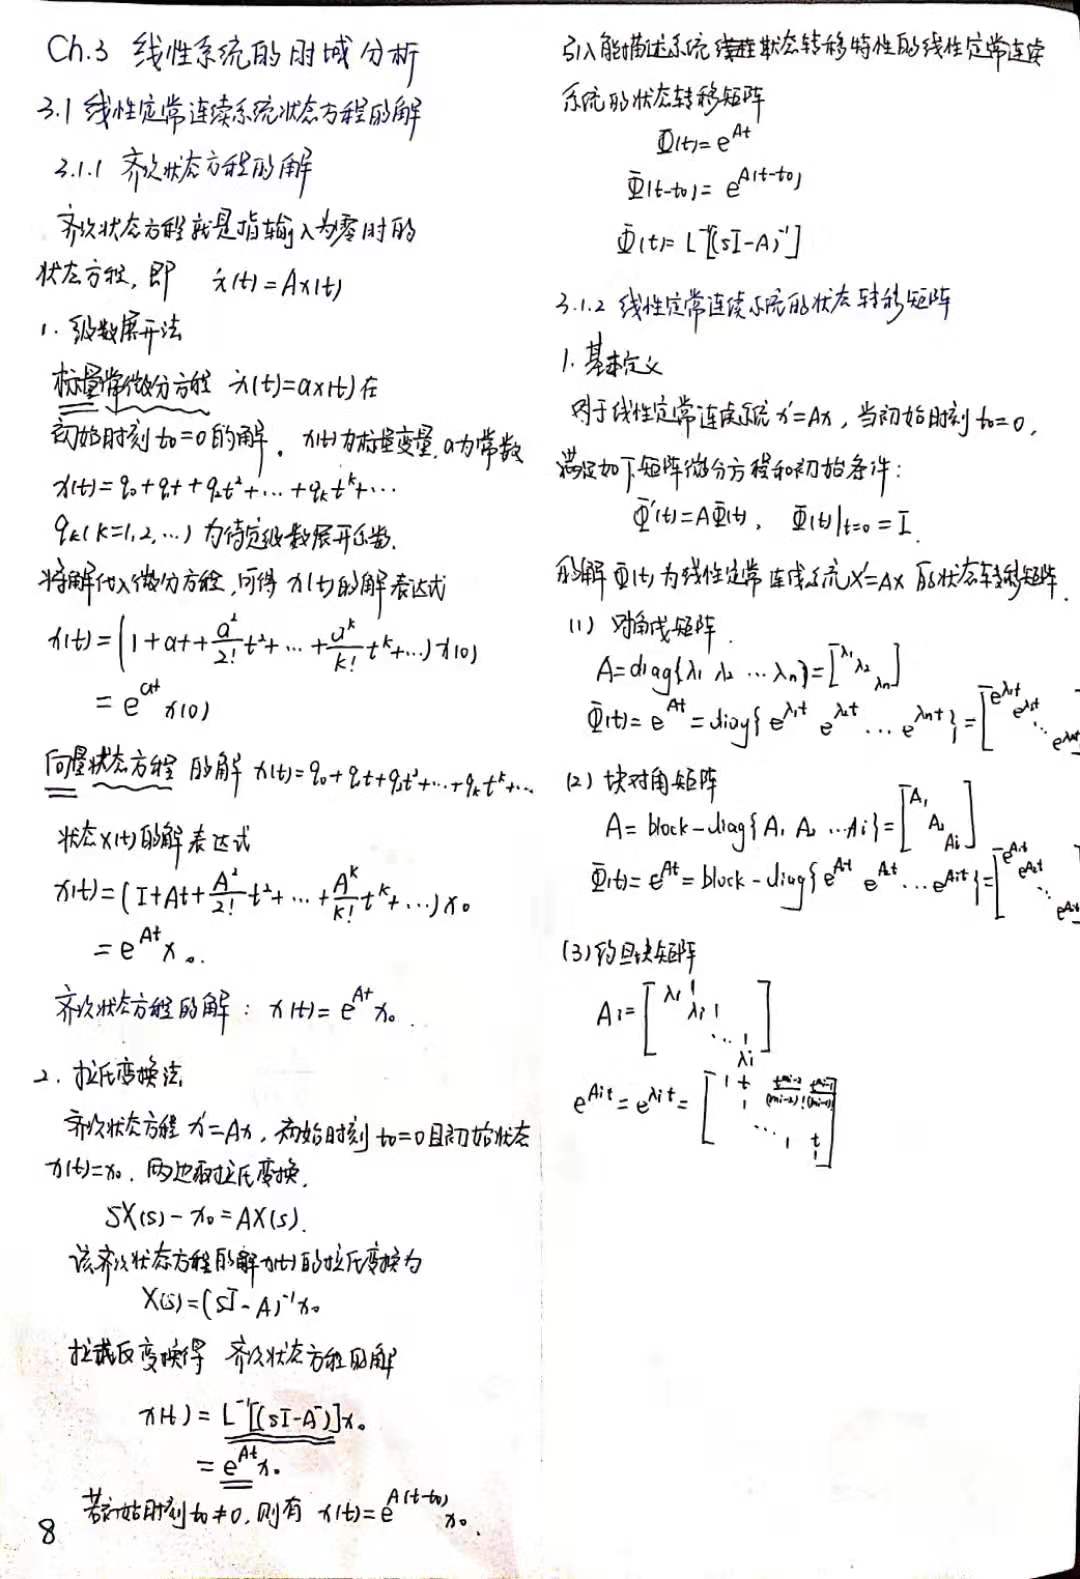 Ch.3 线性系统的时域分析
3.1 线性定常连续系统状态方程的解
3.1.1 齐次状态方程的解
齐次状态方程就是指输入为零时的
状态方程, 即 ẋ(t)=Ax(t)
1. 级数展开法
标量常微分方程 ẋ(t)=ax(t) 在
初始时刻 t₀=0 的解。x(t)为标量变量, a为常数
x(t)=q₀+q₁t+q₂t²+…+qₖtᵏ+…
qₖ(k=1,2,…) 为待定级数展开系数.
将解代入微分方程, 可得 x(t) 的解表达式
x(t)=(1+at+a²/2! t²+…+aᵏ/k! tᵏ+…)x(0)
=e^{at}x(0)
向量状态方程 的解 x(t)=q₀+q₁t+q₂t²+…+qₖtᵏ+…
状态x(t)的解表达式
x(t)=(I+At+A²/2! t²+…+Aᵏ/k! tᵏ+…)x₀
=e^{At}x₀.
齐次状态方程的解: x(t)=e^{At}x₀.
2. 拉氏变换法
齐次状态方程 x'=Ax, 初始时刻 t₀=0且初始状态
x(t)=x₀. 两边取拉氏变换.
SX(s)-x₀=AX(s).
该齐次状态方程的解x(t)的拉氏变换为
X(s)=(sI-A)⁻¹x₀
拉氏反变换得 齐次状态方程的解
x(t)=L⁻¹[(sI-A)⁻¹]x₀
=e^{At}x₀
若初始时刻t₀≠0, 则有 x(t)=e^{A(t-t₀)}x₀.
8
引入能描述系统状态转移特性的线性定常连续
系统的状态转移矩阵
Φ(t)=e^{At}
Φ(t-t₀)=e^{A(t-t₀)}
Φ(t)=L⁻¹[(sI-A)⁻¹]
3.1.2 线性定常连续系统的状态转移矩阵
1. 基本定义
对于线性定常连续系统 x'=Ax, 当初始时刻 t₀=0,
满足如下矩阵微分方程和初始条件:
Φ'(t)=AΦ(t), Φ(t)|t=0=I.
的解 Φ(t) 为线性定常连续系统X'=AX 的状态转移矩阵.
(1) 对角线矩阵.
A=diag{λ₁ λ₂ … λₙ}=[λ₁ λ₂ λₙ]
Φ(t)=e^{At}=diag{e^{λ₁t} e^{λ₂t} … e^{λₙt}}=[e^{λ₁t} e^{λ₂t} ⋱ e^{λₙt}
(2) 块对角矩阵
A=block-diag{A₁ A₂ …Ai}=[A₁ A₂ Ai]
Φ(t)=e^{At}=block-diag{e^{A₁t} e^{A₂t} … e^{Ait}}=[e^{A₁t} e^{A₂t} ⋱ e^{Ait}
(3) 约旦块矩阵
Ai=[λi 1 λi 1 ⋱ 1 λi]
e^{Ait}=e^{λit}=[1 t t^{mi-2}/(mi-2)! t^{mi-1}/(mi-1)! 1 ⋱ 1 t 1]